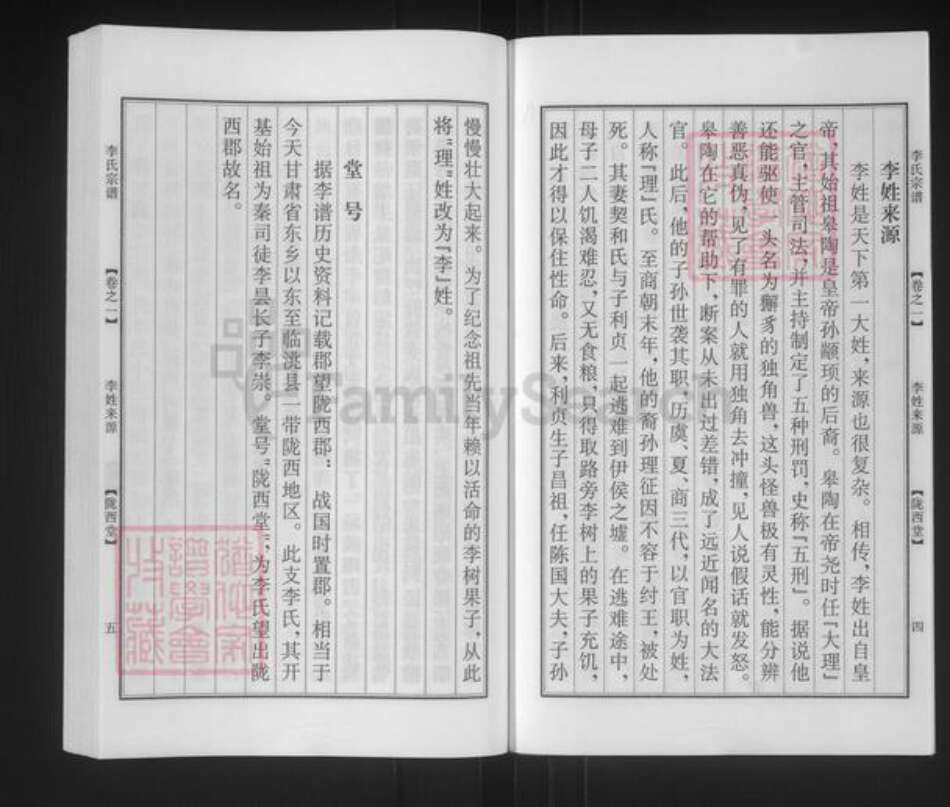 李氏宗谱 【卷之一】 李姓来源 【陇西堂】 四
李姓来源
李姓是天下第一大姓，来源也很复杂。相传，李姓出自皇
帝，其始祖皋陶是皇帝孙颛顼的后裔。皋陶在帝尧时任『大理』
之官，主管司法，并主持制定了五种刑罚，史称『五刑』。据说他
还能驱使一头名为獬豸的独角兽，这头怪兽极有灵性，能分辨
善恶真伪，见了有罪的人就用独角去冲撞，见人说假话就发怒。
皋陶在它的帮助下，断案从未出过差错，成了远近闻名的大法
官。此后，他的子孙世袭其职，历虞、夏、商三代，以官职为姓，
人称『理』氏。至商朝末年，他的裔孙理征因不容于纣王，被处
死。其妻契和氏与子利贞一起逃难到伊侯之墟。在逃难途中，
母子二人饥渴难忍，又无食粮，只得取路旁李树上的果子充饥，
因此才得以保住性命。后来，利贞生子昌祖，任陈国大夫，子孙
慢慢壮大起来。为了纪念祖先当年赖以活命的李树果子，从此
将"理"姓改为『李』姓。
堂号
据李谱历史资料记载郡望陇西郡：战国时置郡。相当于
今天甘肃省东乡以东至临洮县一带陇西地区。此支李氏，其开
基始祖为秦司徒李昙长子李崇。堂号"陇西堂"，为李氏望出陇
西郡故名。
李氏宗谱 【卷之一】 李姓来源 【陇西堂】 五
FamilySearch